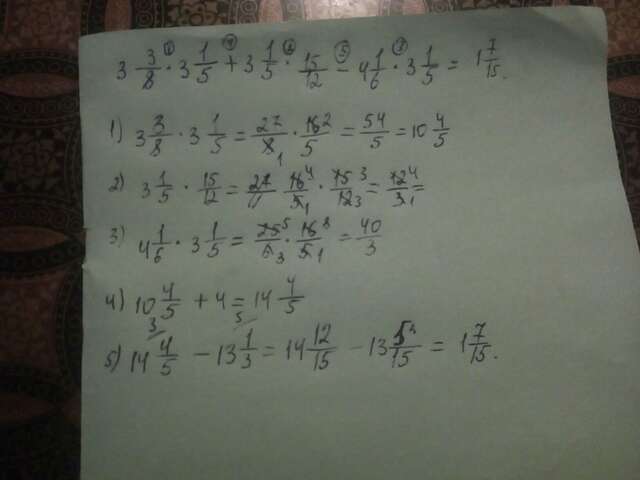 3 3/8 · 3 1/5 + 3 1/5 · 15/12 − 4 1/6 · 3 1/5 = 1 7/15.
1) 3 3/8 · 3 1/5 = 27/8 1 · 16 2/5 = 54/5 = 10 4/5
2) 3 1/5 · 15/12 = 16 4/5 1 · 15 3/12 3 = 12 4/3 1 =
3) 4 1/6 · 3 1/5 = 25 5/6 3 · 16 8/5 1 = 40/3
4) 10 4/5 + 4 = 14 4/5
5) 14 4/5 − 13 1/3 = 14 12/15 − 13 5/15 = 1 7/15.